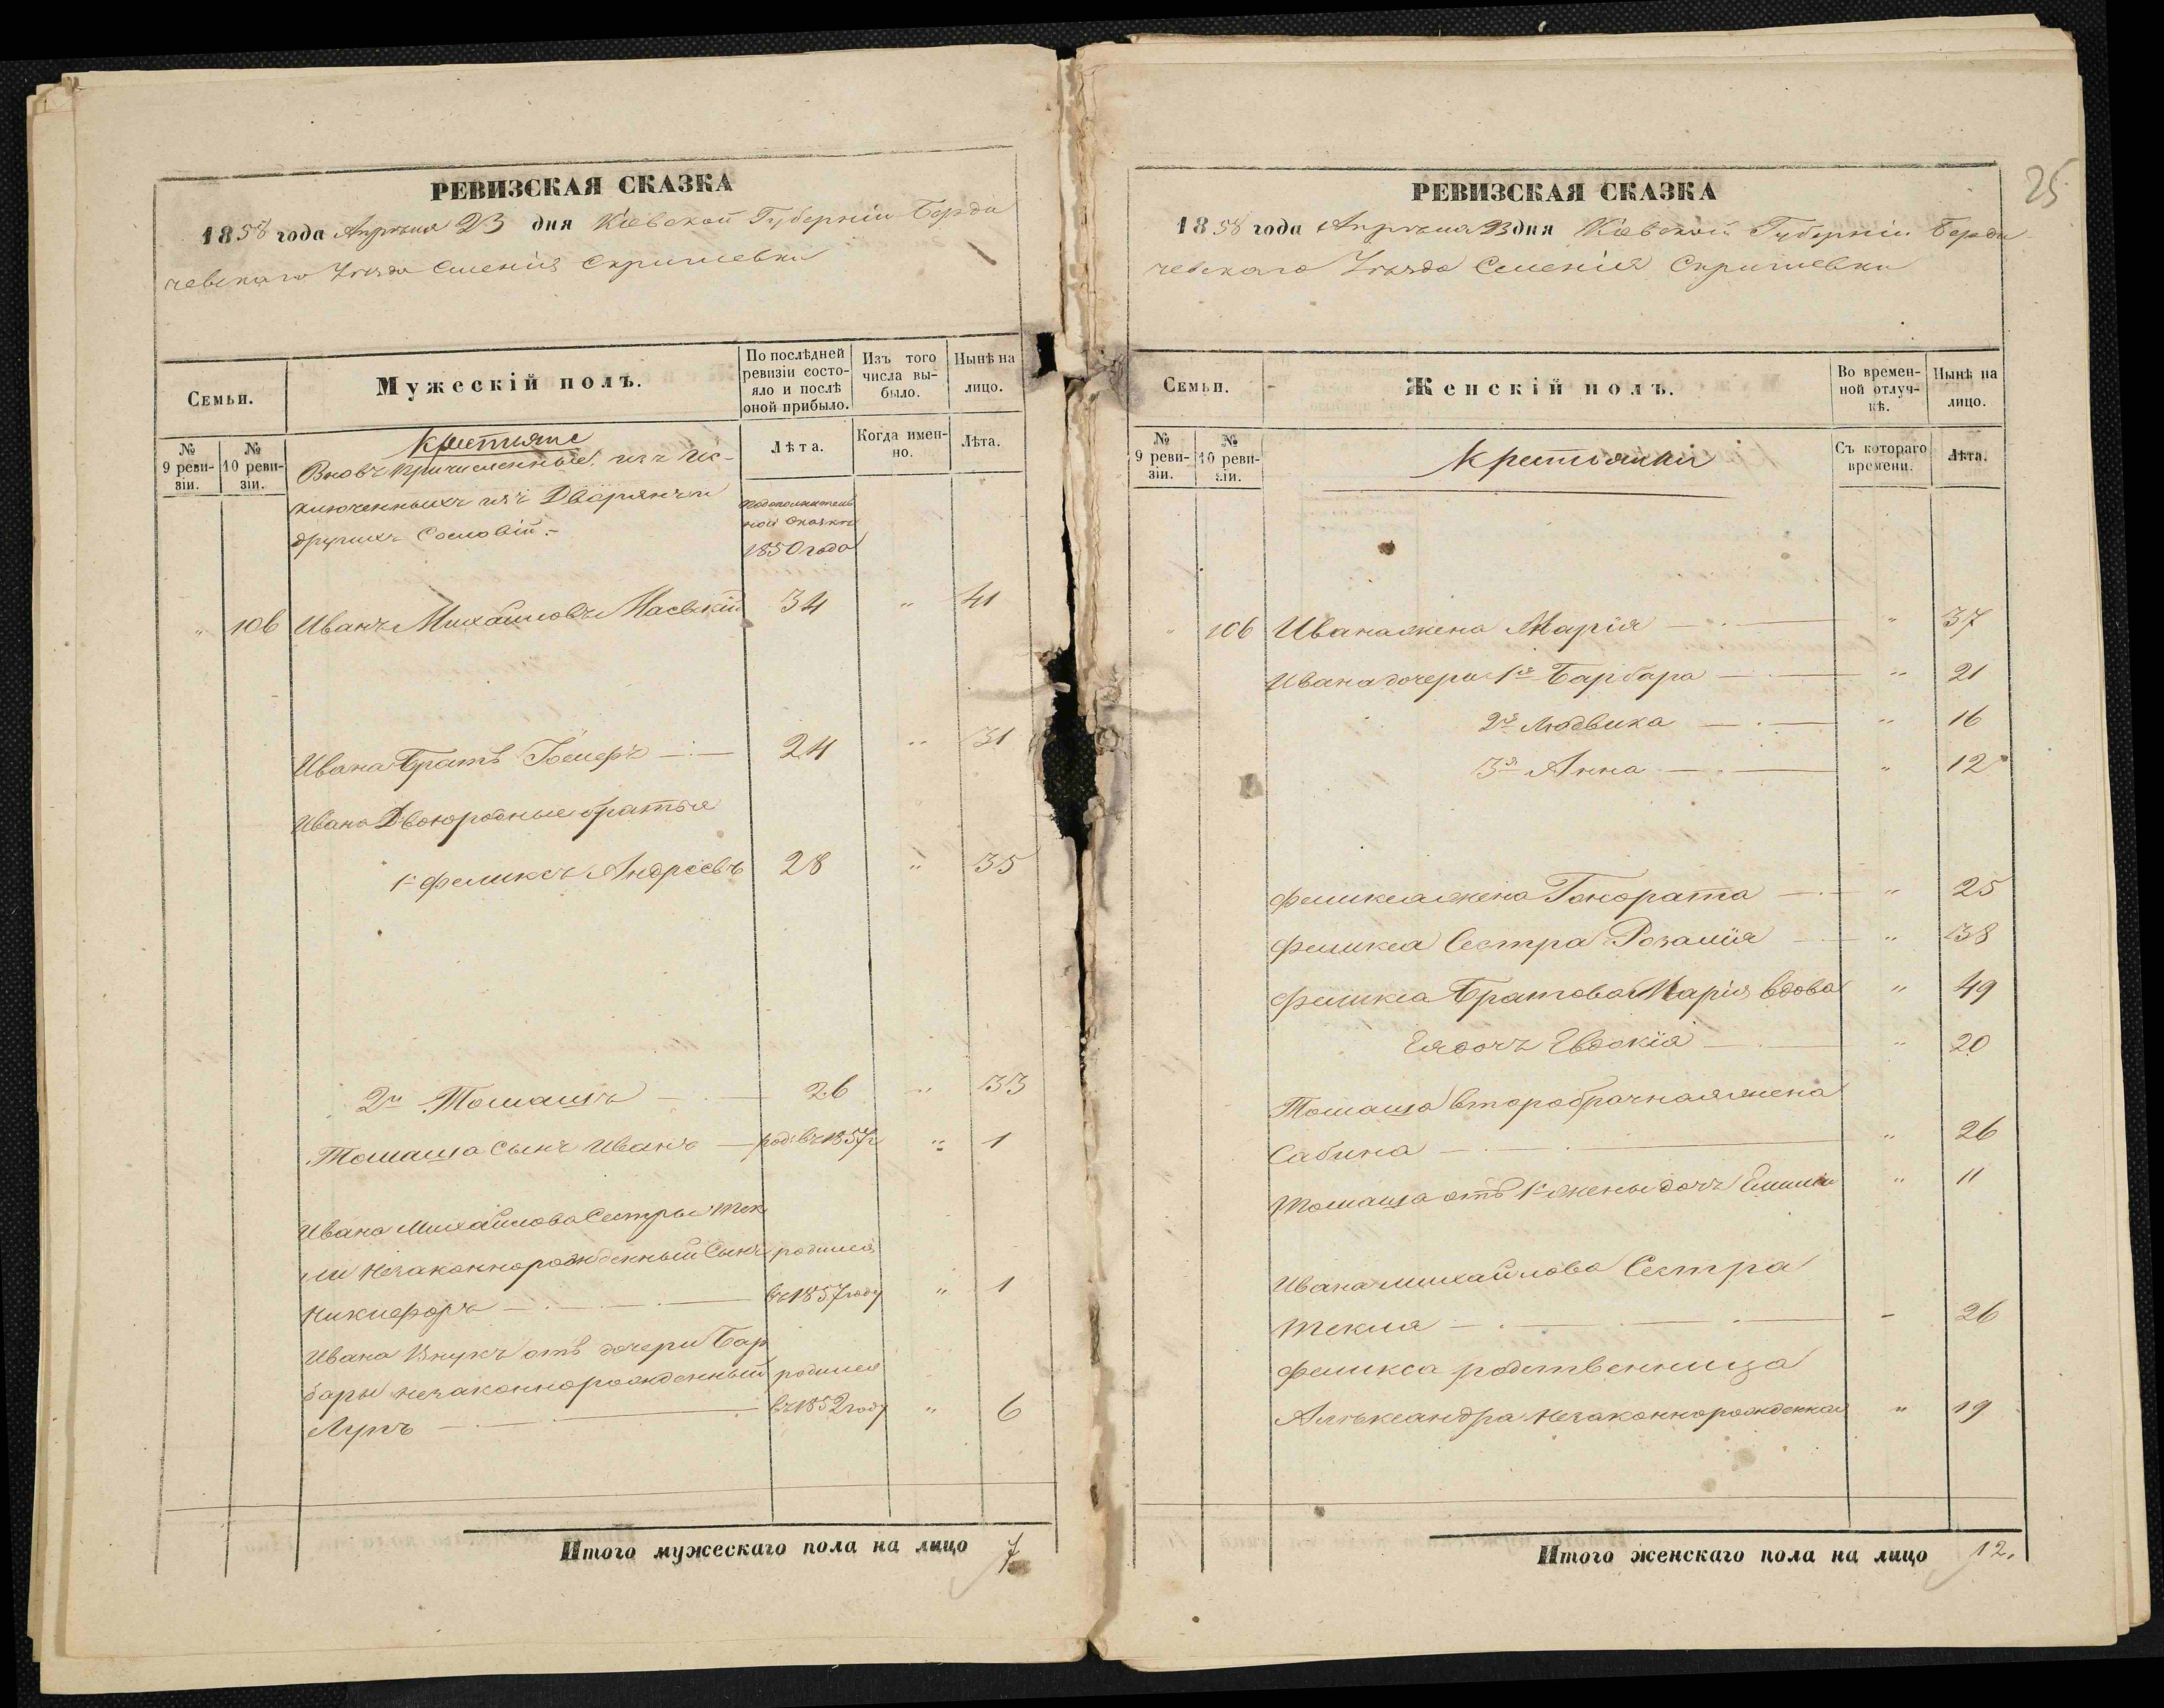 РЕВИЗСКАЯ СКАЗКА
1858 года Апрѣля 23 дня Кіевской Губерніи Берди
чевскаго Уѣзда Именія Скригилевки
Семьи.
Мужескій полъ.
По послѣдней ревизіи состояло и послѣ оной прибыло.
Изъ того числа выбыло.
Нынѣ на лицо.
№ 9 ревизіи.
№ 10 ревизіи.
Лѣта.
Когда именно.
Лѣта.
Крестьяне
Вновь причисленные изъ ис-
ключенныхъ изъ Дворянъ и
другихъ Сословій.-
По дополнитель
ной сказкѣ
1850 года
" 106 Иванъ Михайловъ 34 " 41
Ивана Братъ 24 " 31
Ивана Двоюродные братья
1й Феликсъ Андреевъ 28 " 35
2й Томашъ 26 " 33
Томаша Сынъ Иванъ род: въ 1857г " 1
Ивана Михайлова Сестры Тек
ли Незаконнорожденный Сынъ родился
Никифоръ въ 1857 году " 1
Ивана Внукъ отъ дочери Бар
бары незаконнорожденный родился
Лупъ въ 1852 году " 6
Итого мужескаго пола на лицо 7
25
РЕВИЗСКАЯ СКАЗКА
1858 года Апрѣля 23 дня Кіевской Губерніи Берди
чевскаго Уѣзда Именія Скригилевки
Семьи.
Женскій полъ.
Во временной отлучкѣ.
Нынѣ на лицо.
№ 9 ревизіи.
№ 10 ревизіи.
Съ котораго времени.
Лѣта.
Крестьянки
" 106 Ивана жена Марія " 37
Ивана дочери 1я Барбара " 21
2я Людвика " 16
3я Анна " 12
Феликса жена Гонората " 25
Феликса Сестра Розалія " 38
Феликса Братова Марія вдова " 49
Ея дочь Евдокія " 20
Томаша второбрачная жена
Сабина " 26
Томаша отъ 1й жены дочь Емилія " 11
Ивана Михайлова Сестра
Текля " 26
Феликса родственница
Алѣксандра незаконнорожденная " 19
Итого женскаго пола на лицо 12.